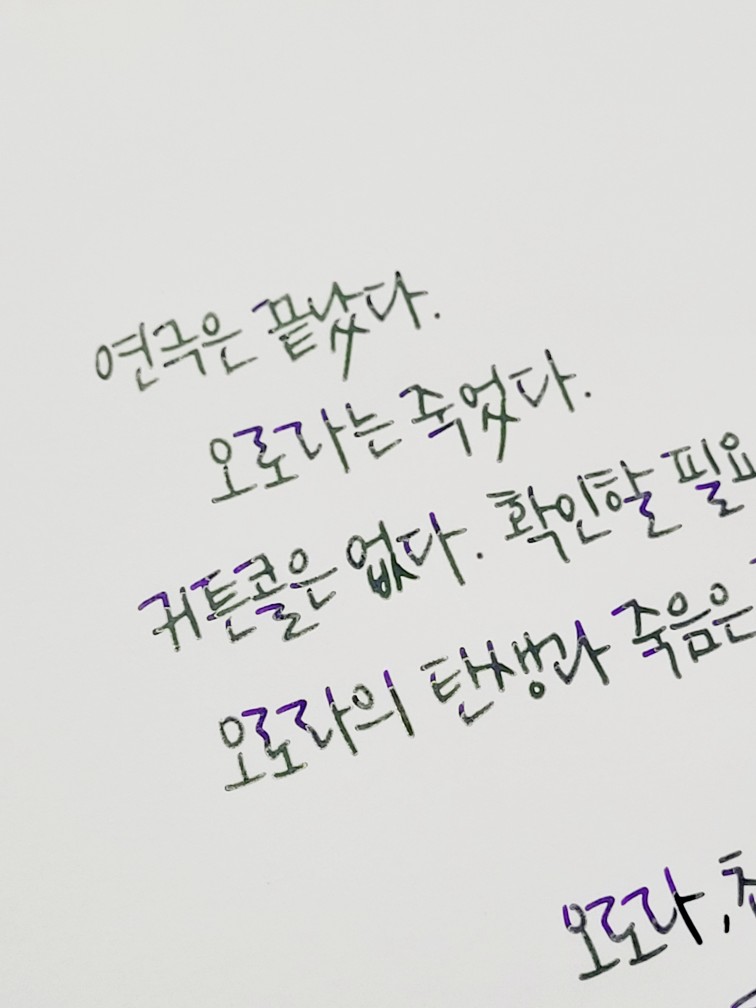 연극은 끝났다.
오로라는 죽었다.
커튼콜은 없다. 확인할 필요
오로라의 탄생과 죽음은
오로라,